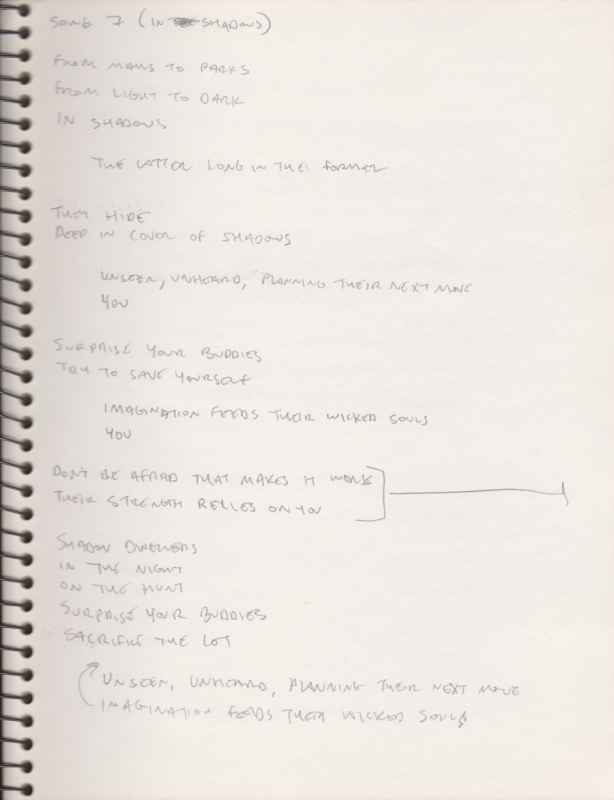 SONG 7 (IN SHADOWS)
FROM MALLS TO PARKS
FROM LIGHT TO DARK
IN SHADOWS
THE LATTER LONG IN THE FORMER
THEY HIDE
DEEP IN COVER OF SHADOWS
UNSEEN, UNHEARD, PLANNING THEIR NEXT MOVE
YOU
SURPRISE YOUR BUDDIES
TRY TO SAVE YOURSELF
IMAGINATION FEEDS THEIR WICKED SOULS
YOU
DON'T BE AFRAID THAT MAKES IT WORSE
THEIR STRENGTH RELIES ON YOU
SHADOW DWELLERS
IN THE NIGHT
ON THE HUNT
SURPRISE YOUR BUDDIES
SACRIFICE THE LOT
UNSEEN, UNHEARD, PLANNING THEIR NEXT MOVE
IMAGINATION FEEDS THEIR WICKED SOULS